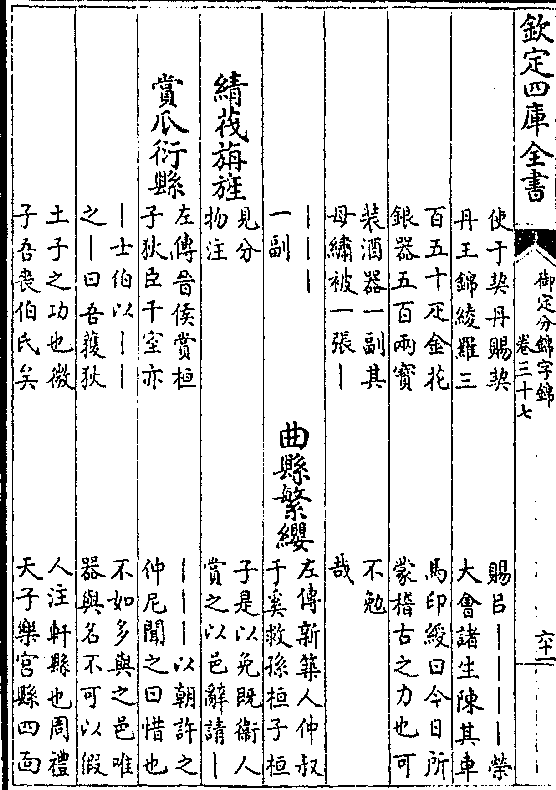 欽定四庫全書
御定分類字錦
卷三十七
六十一
使于契丹賜契
丹王錦綾羅三
百五十疋金花
銀器五百兩寳
裝酒器一副其
母繡被一張｜
｜｜｜
一副
綪茷旃旌
見分
物注
賞瓜衍縣
左傳晉侯賞桓
子狄臣千室亦
｜士伯以｜｜
之｜曰吾獲狄
土子之功也微
子吾喪伯氏矣
賜吕｜｜｜｜榮
大會諸生陳其車
馬印綬曰今日所
蒙稽古之力也可
不勉
哉
曲縣繁纓
左傳新築人仲叔
于奚救孫桓子桓
子是以免既衛人
賞之以邑辭請｜
｜｜｜以朝許之
仲尼聞之曰惜也
不如多與之邑唯
器與名不可以假
人注軒縣也周禮
天子樂宫縣四面